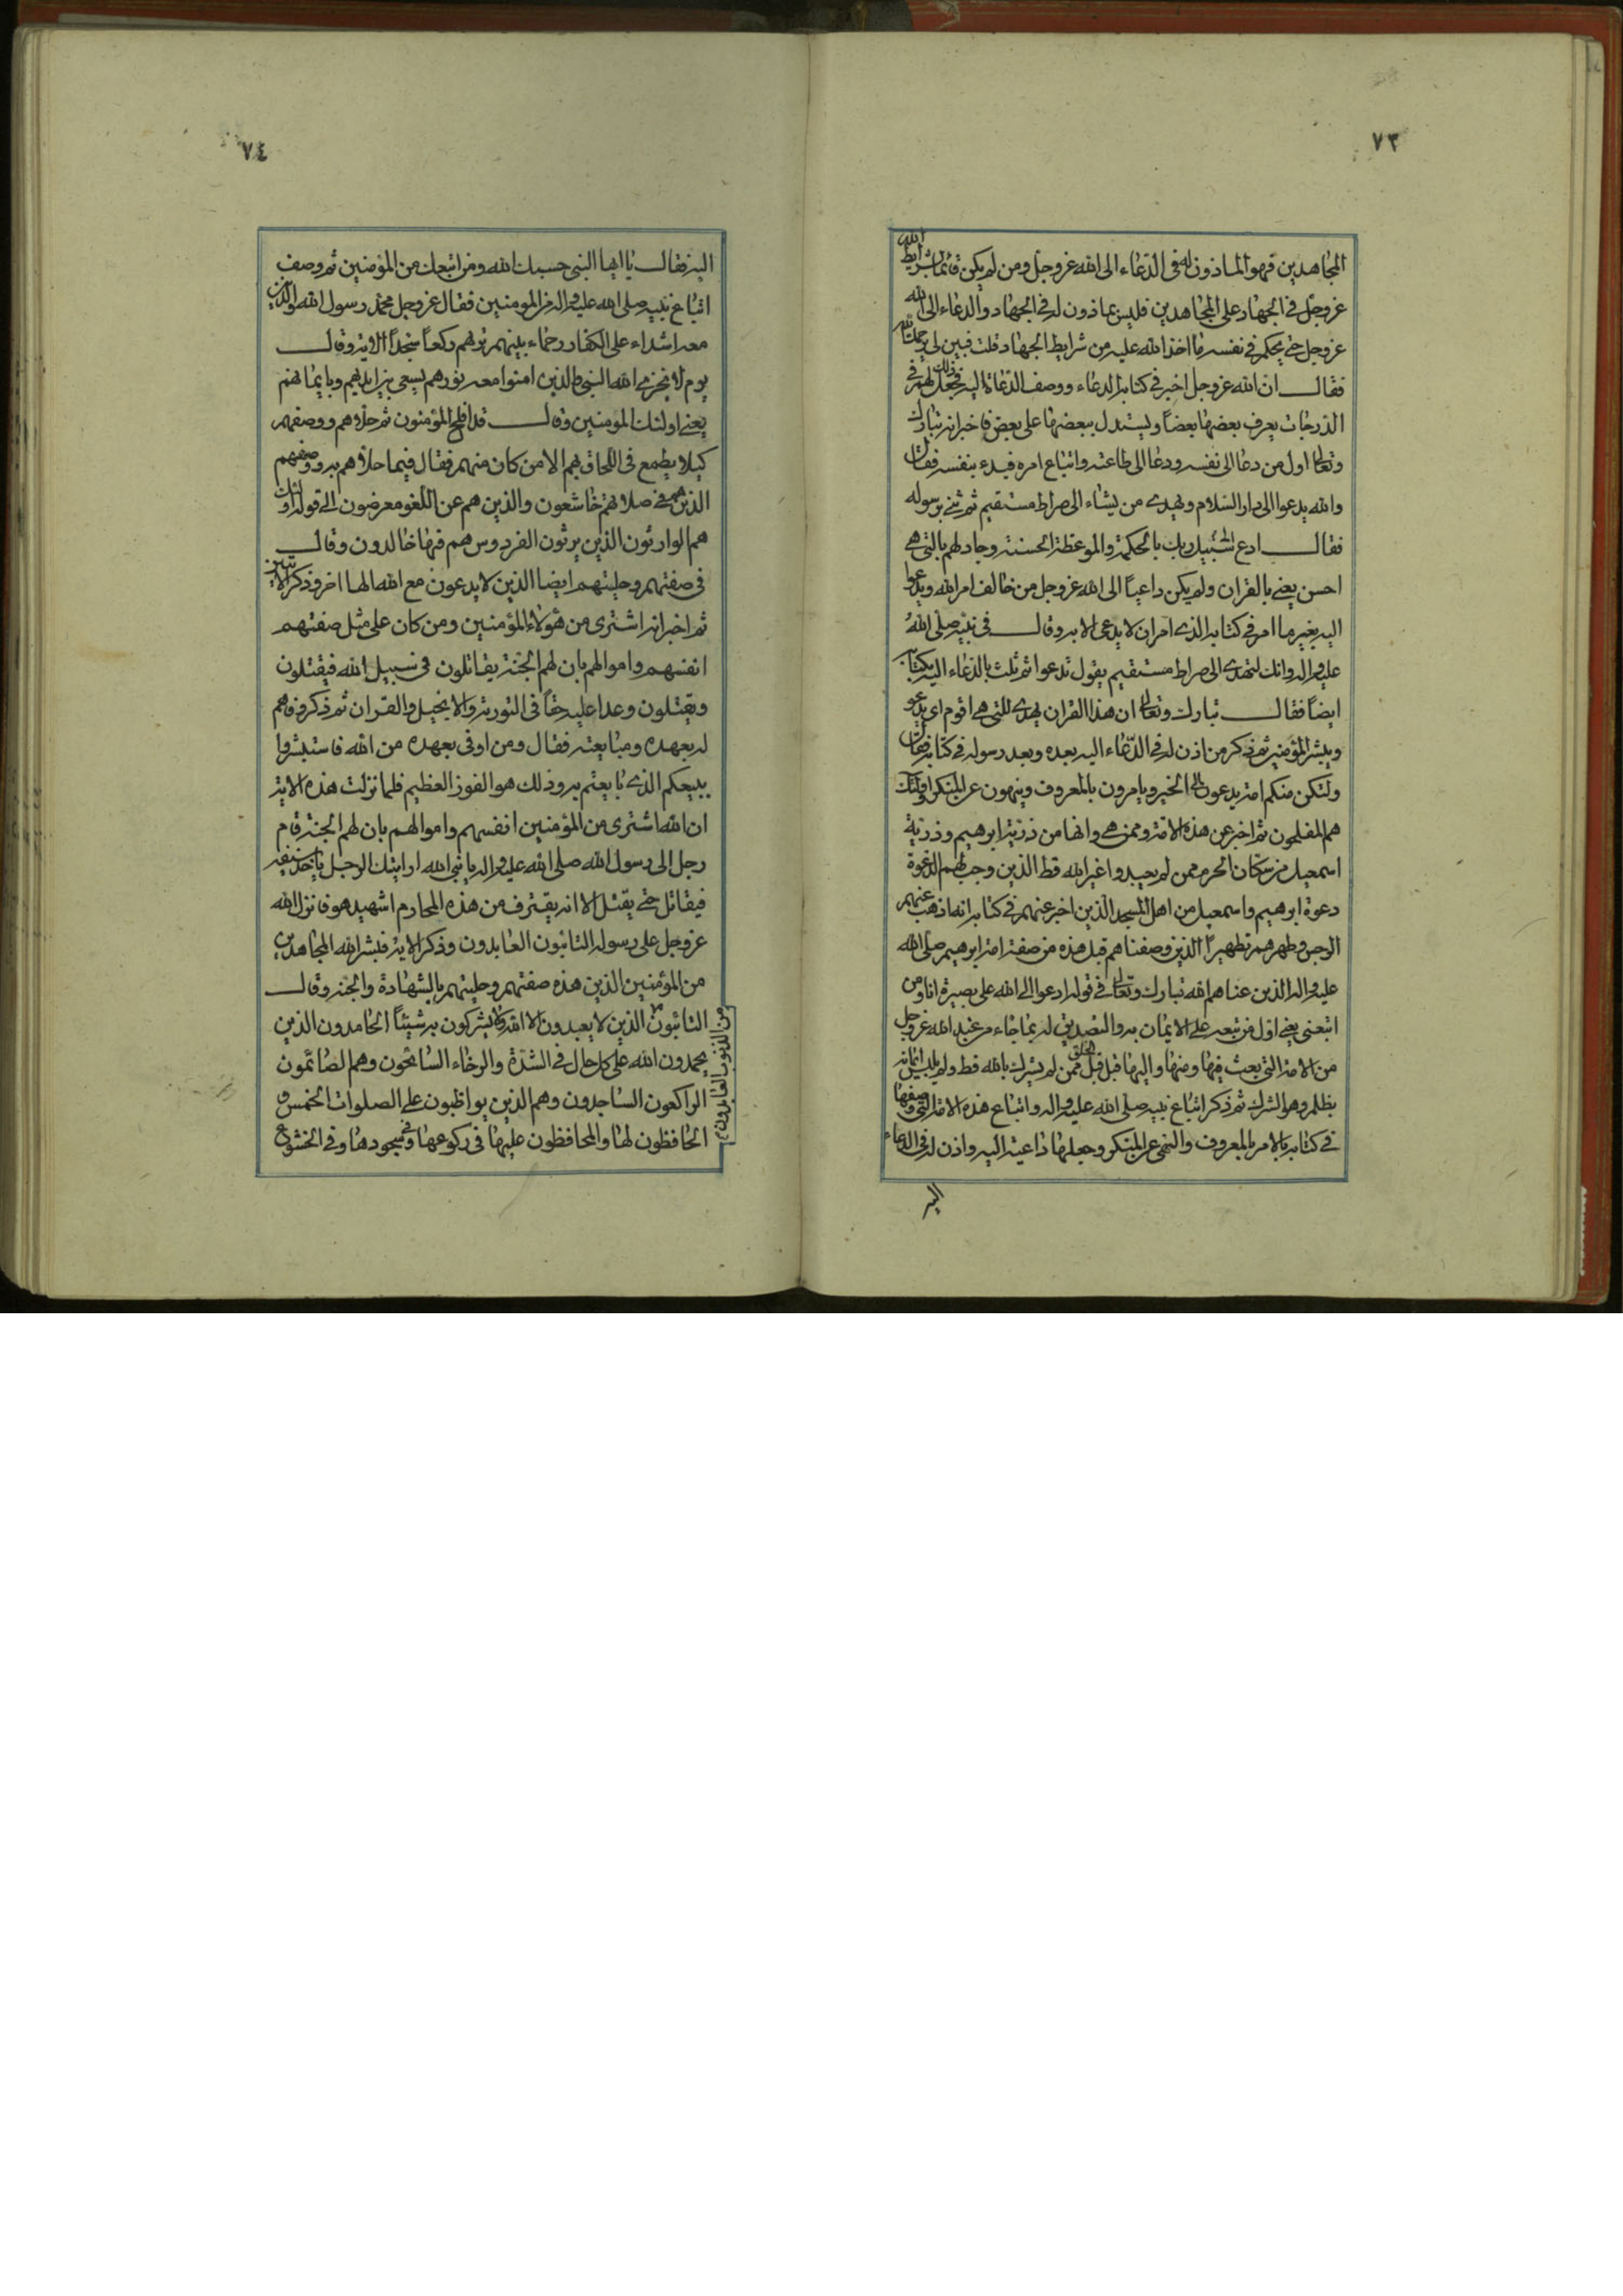 ٧٣
المجاهدين فهو الماذون له فى الدّعاء الى الله عزوجل ومن لم يكن قائما بشرايط الله
عزوجل فى الجهاد على المجاهدين فليس بماذون له فى الجهاد والدعاء الى الله
عزوجل حتى يحكم فى نفسه ما اخذ الله عليه من شرايط الجهاد قلت فبين لى يرحمك الله
فقال ان الله عزوجل اخبر فى كتابه الدعاء ووصف الدعاة اليه فجعل ذلك لهم فى
الدرجات يعرف بعضها بعضاً ويستدل ببعضها على بعض فاخبر انه تبارك
وتعالى اول من دعا الى نفسه ودعا الى طاعته واتباع امره فبدء بنفسه فقال
والله يدعوا الى دار السّلام ويهدى من يشاء الى صراط مستقيم ثم ثنى برسوله
فقال ادع الى سبيل ربك بالحكمة والموعظة الحسنة وجادلهم بالتى هى
احسن يعنى بالقران ولم يكن داعياً الى الله عزوجل من خالف امر الله ويدعوا
اليه بغير ما امر فى كتابه الذى امر ان لا يدعى الا به وقال فى نبيه صلى الله
عليه واله وانك لتهدى الى صراط مستقيم يقول تدعوا ثم ثلث بالدعاء اليه بكتابه
ايضاً فقال تبارك وتعالى ان هذا القران يهدى للتى هى اقوم اى يدعو
ويبشر المؤمنين ثم ذكر من اذن له فى الدّعاء اليه بعده وبعد رسوله فى كتابه فقال
ولتكن منكم امة يدعون الى الخير ويامرون بالمعروف وينهون عن المنكر اولئك
هم المفلحون ثم اخبر عن هذه الامة وممن هى وانها من ذرية ابرهيم وذرية
اسمعيل من سكان الحرم ممن لم يعبدوا غير الله قط الذين وجب لهم الدعوة
دعوة ابرهيم واسمعيل من اهل المسجد الذين اخبر عنهم فى كتابه انه اذهب عنهم
الرجس وطهرهم تطهيراً الذين وصفناهم قبل هذه من صفة امة ابرهيم صلى الله
عليه واله الذين عناهم الله تبارك وتعالى فى قوله ادعوا الى الله على بصيرة انا ومن
اتبعنى يعنى اول من تبعه على الايمان به والتصديق له بما جاء من عند الله عزوجل
من الامة التى بعث فيها ومنها واليها قبل الخلق ممن لم يشرك بالله قط ولم يلبس ايمانه
بظلم وهو الشرك ثم ذكر اتباع نبيه صلى الله عليه واله واتباع هذه الامة التى وصفها
فى كتابه بالامر بالمعروف والنهى عن المنكر وجعلها داعية اليه واذن له فى الدعاء
اليه
٧٤
اليه فقال يا ايها النبى حسبك الله ومن اتبعك من المؤمنين ثم وصف
اتباع نبيه صلى الله عليه واله من المومنين فقال عزوجل محمد رسول الله والذين
معه اشداء على الكفار رحماء بينهم تريهم ركعاً سجداً الاية وقال
يوم لا يخزى الله النبى والذين امنوا معه نورهم يسعى بين ايديهم وبايمانهم
يعنى اولئك المومنين وقال قد افلح المؤمنون ثم حلاهم ووصفهم
كيلا يطمع فى اللحاق بهم الا من كان منهم فقال فيما حلاهم به ووصفهم
الذين هم فى صلاتهم خاشعون والذين هم عن اللغو معرضون الى قوله اولئك
هم الوارثون الذين يرثون الفردوس هم فيها خالدون وقال
فى صفتهم وحليتهم ايضا الذين لا يدعون مع الله الها اخر وذكر الايتين
ثم اخبر انه اشترى من هؤلاء المؤمنين ومن كان على مثل صفتهم
انفسهم واموالهم بان لهم الجنة يقاتلون فى سبيل الله فيقتلون
ويقتلون وعدا عليه حقاً فى التورية والانجيل والقران ثم ذكر وفاهم
له بعهده ومبايعته فقال ومن اوفى بعهده من الله فاستبشروا
ببيعكم الذى بايعتم به وذلك هو الفوز العظيم فلما نزلت هذه الاية
ان الله اشترى من المؤمنين انفسهم واموالهم بان لهم الجنة قام
رجل الى رسول الله صلى الله عليه واله يا نبى الله ارايتك الرجل ياخذ سيفه
فيقاتل حتى يقتل الا انه يقترف من هذه المحارم اشهيد هو فانزل الله
عزوجل على رسوله التائبون العابدون وذكر الاية فبشر الله المجاهدين
من المؤمنين الذين هذه صفتهم وحليتهم بالشهادة والجنة وقال
التائبون الذين لا يعبدون الا الله ولا يشركون به شيئاً الحامدون الذين
من الذنوب العابدون
يحمدون الله على كل حال فى الشدّة والرخاء السائحون وهم الصائمون
الراكعون الساجدون وهم الذين يواظبون على الصلوات الخمس و
الحافظون لها والمحافظون عليها فى ركوعها وفى سجودها وفى الخشوع